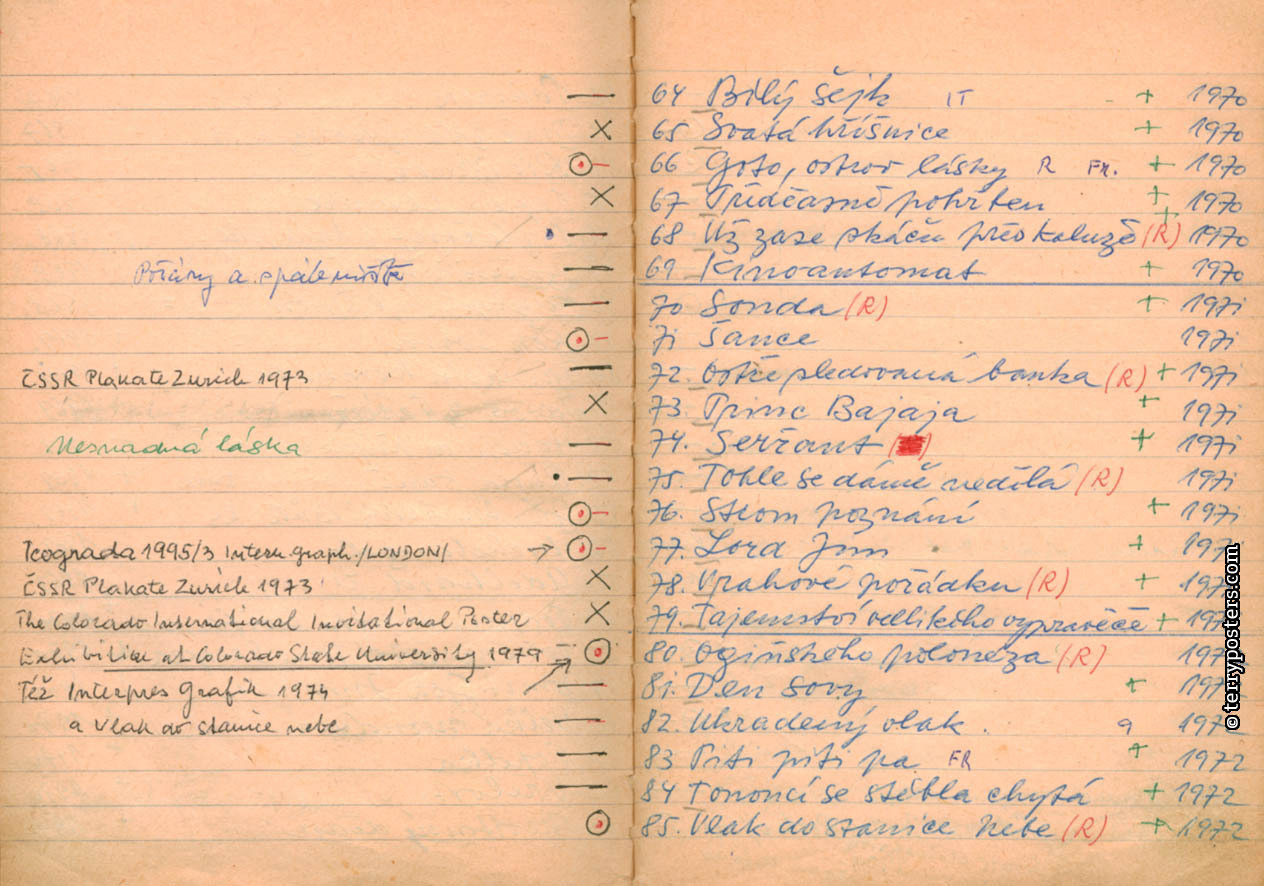 Požáry a spáleniště
ČSSR Plakate Zurich 1973
Nesnadná láska
Icograda 1995/3 Intern. graph. /LONDON/
ČSSR Plakate Zurich 1973
The Colorado International Invitational Poster
Exhibition at Colorado State University 1979
Též Interpres Grafik 1974
a Vlak do stanice nebe
64 Bílý šejk IT + 1970
65 Svatá hříšnice + 1970
66 Goto, ostrov lásky R FR. + 1970
67 Předčasně pohřben + 1970
68 Už zase skáču přes kaluže (R) + 1970
69 Kinoautomat + 1970
70 Sonda (R) + 1971
71 Šance 1971
72. Ostře sledovaná banka (R) + 1971
73. Princ Bajaja + 1971
74. Seržant + 1971
75. Tohle se dámě nedělá (R) 1971
76. Strom poznání + 1971
77. Lord Jim + 197
78. Vrahové pořádku (R) + 197
79. Tajemství velikého vypravěče + 197
80. Ogiňského polonéza (R) 197
81. Den sovy + 197
82. Ukradený vlak. 9 1972
83 Piti piti pa FR + 1972
84 Tonoucí se stébla chytá + 1972
85. Vlak do stanice Nebe (R) + 1972
© terryposters.com